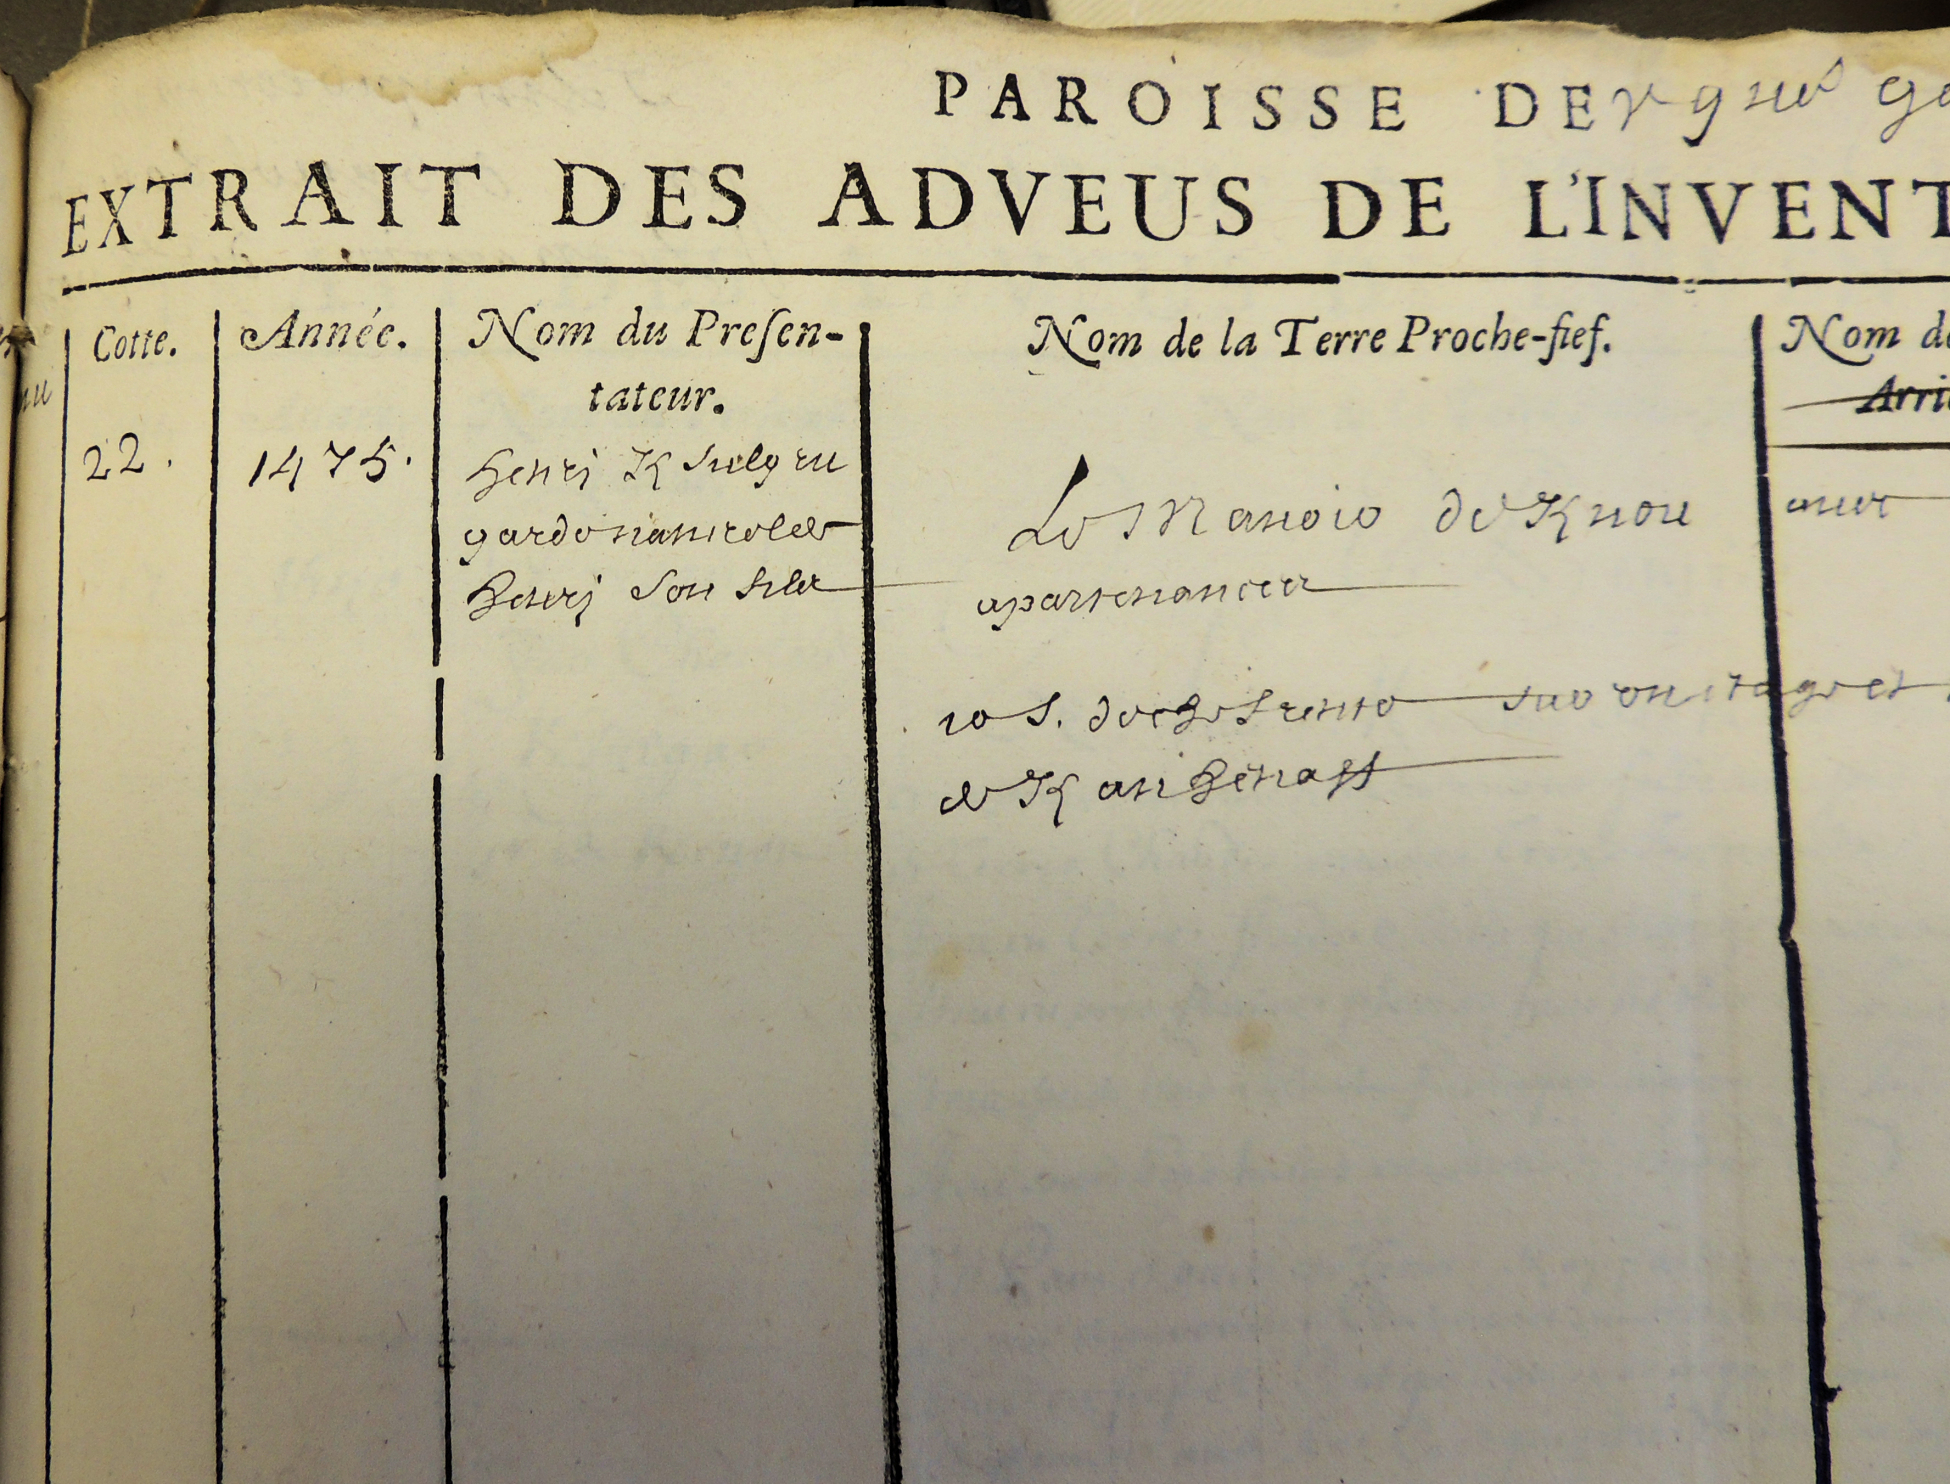 PAROISSE DE rgue ga
EXTRAIT DES ADVEUS DE L'INVENT
Cotte.
Année.
Nom du Presen-
tateur.
Nom de la Terre Proche-fief.
Nom de
Arri
22.
1475.
henri K
garde naturel de
henri son fils
Le Manoir de K nou
apartenances
avec
10 s. de chefrente sur un
de K an henaff